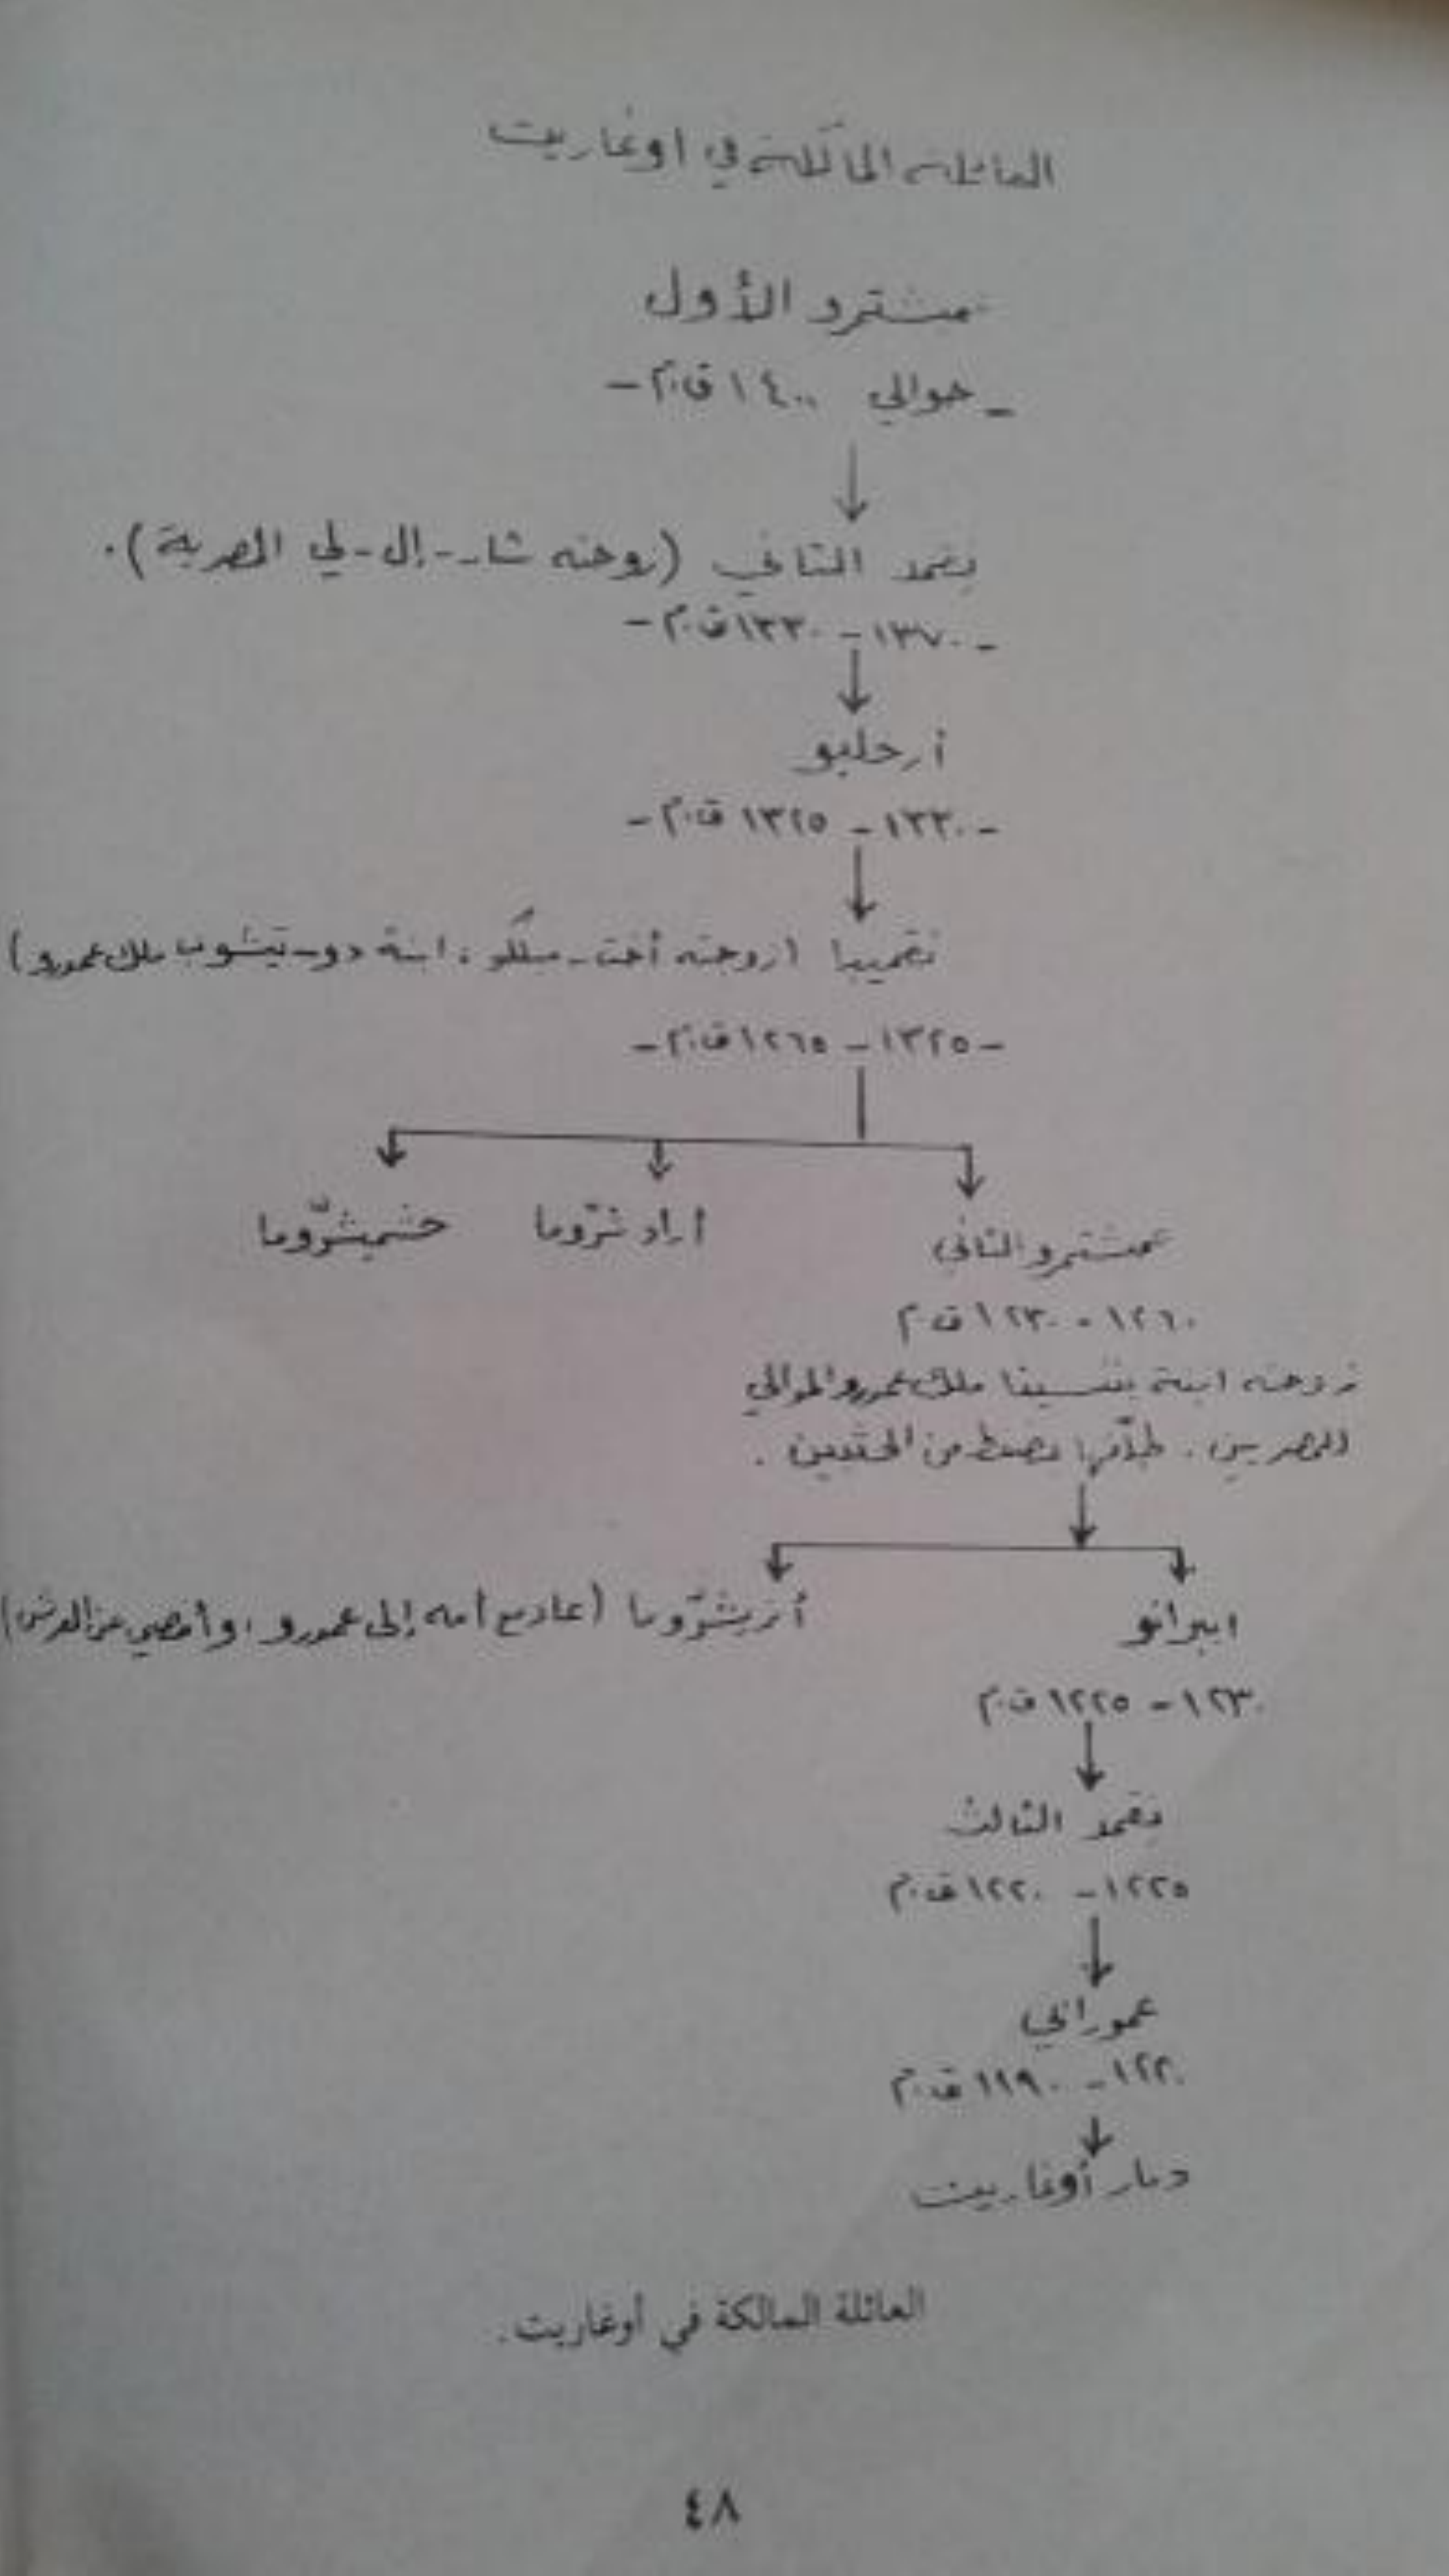 العائلة المالكة في اوغاريت
عمشترو الأول
- حوالي ١٤٠٠ ق.م -
نقمد الثاني (زوجته شار-إل-لي المصرية).
- ١٣٧٠ - ١٣٣٠ ق.م -
أرخلبو
- ١٣٣٠ - ١٣٢٥ ق.م -
نقميبا (زوجته أخت-ملكو، ابنة دو-تيشوب ملك عمورو)
- ١٣٢٥ - ١٢٦٥ ق.م -
عمشترو الثاني أراد شرّوما خشميشرّوما
١٢٦٠ - ١٢٣٠ ق م
زوجته ابنة بنتسينا ملك عمورو الموالي
للمصريين. طلّقها بضغط من الحثيين.
ابيرانو أرتيشرّوما (عاد مع أمه إلى عمورو، وأقصي عن العرش)
١٢٣٠ - ١٢٢٥ ق.م
نقمد الثالث
١٢٢٥ - ١٢٢٠ ق.م
عمورابي
١٢٢٠ - ١١٩٠ ق.م
دمار أوغاريت
العائلة المالكة في أوغاريت.
٤٨